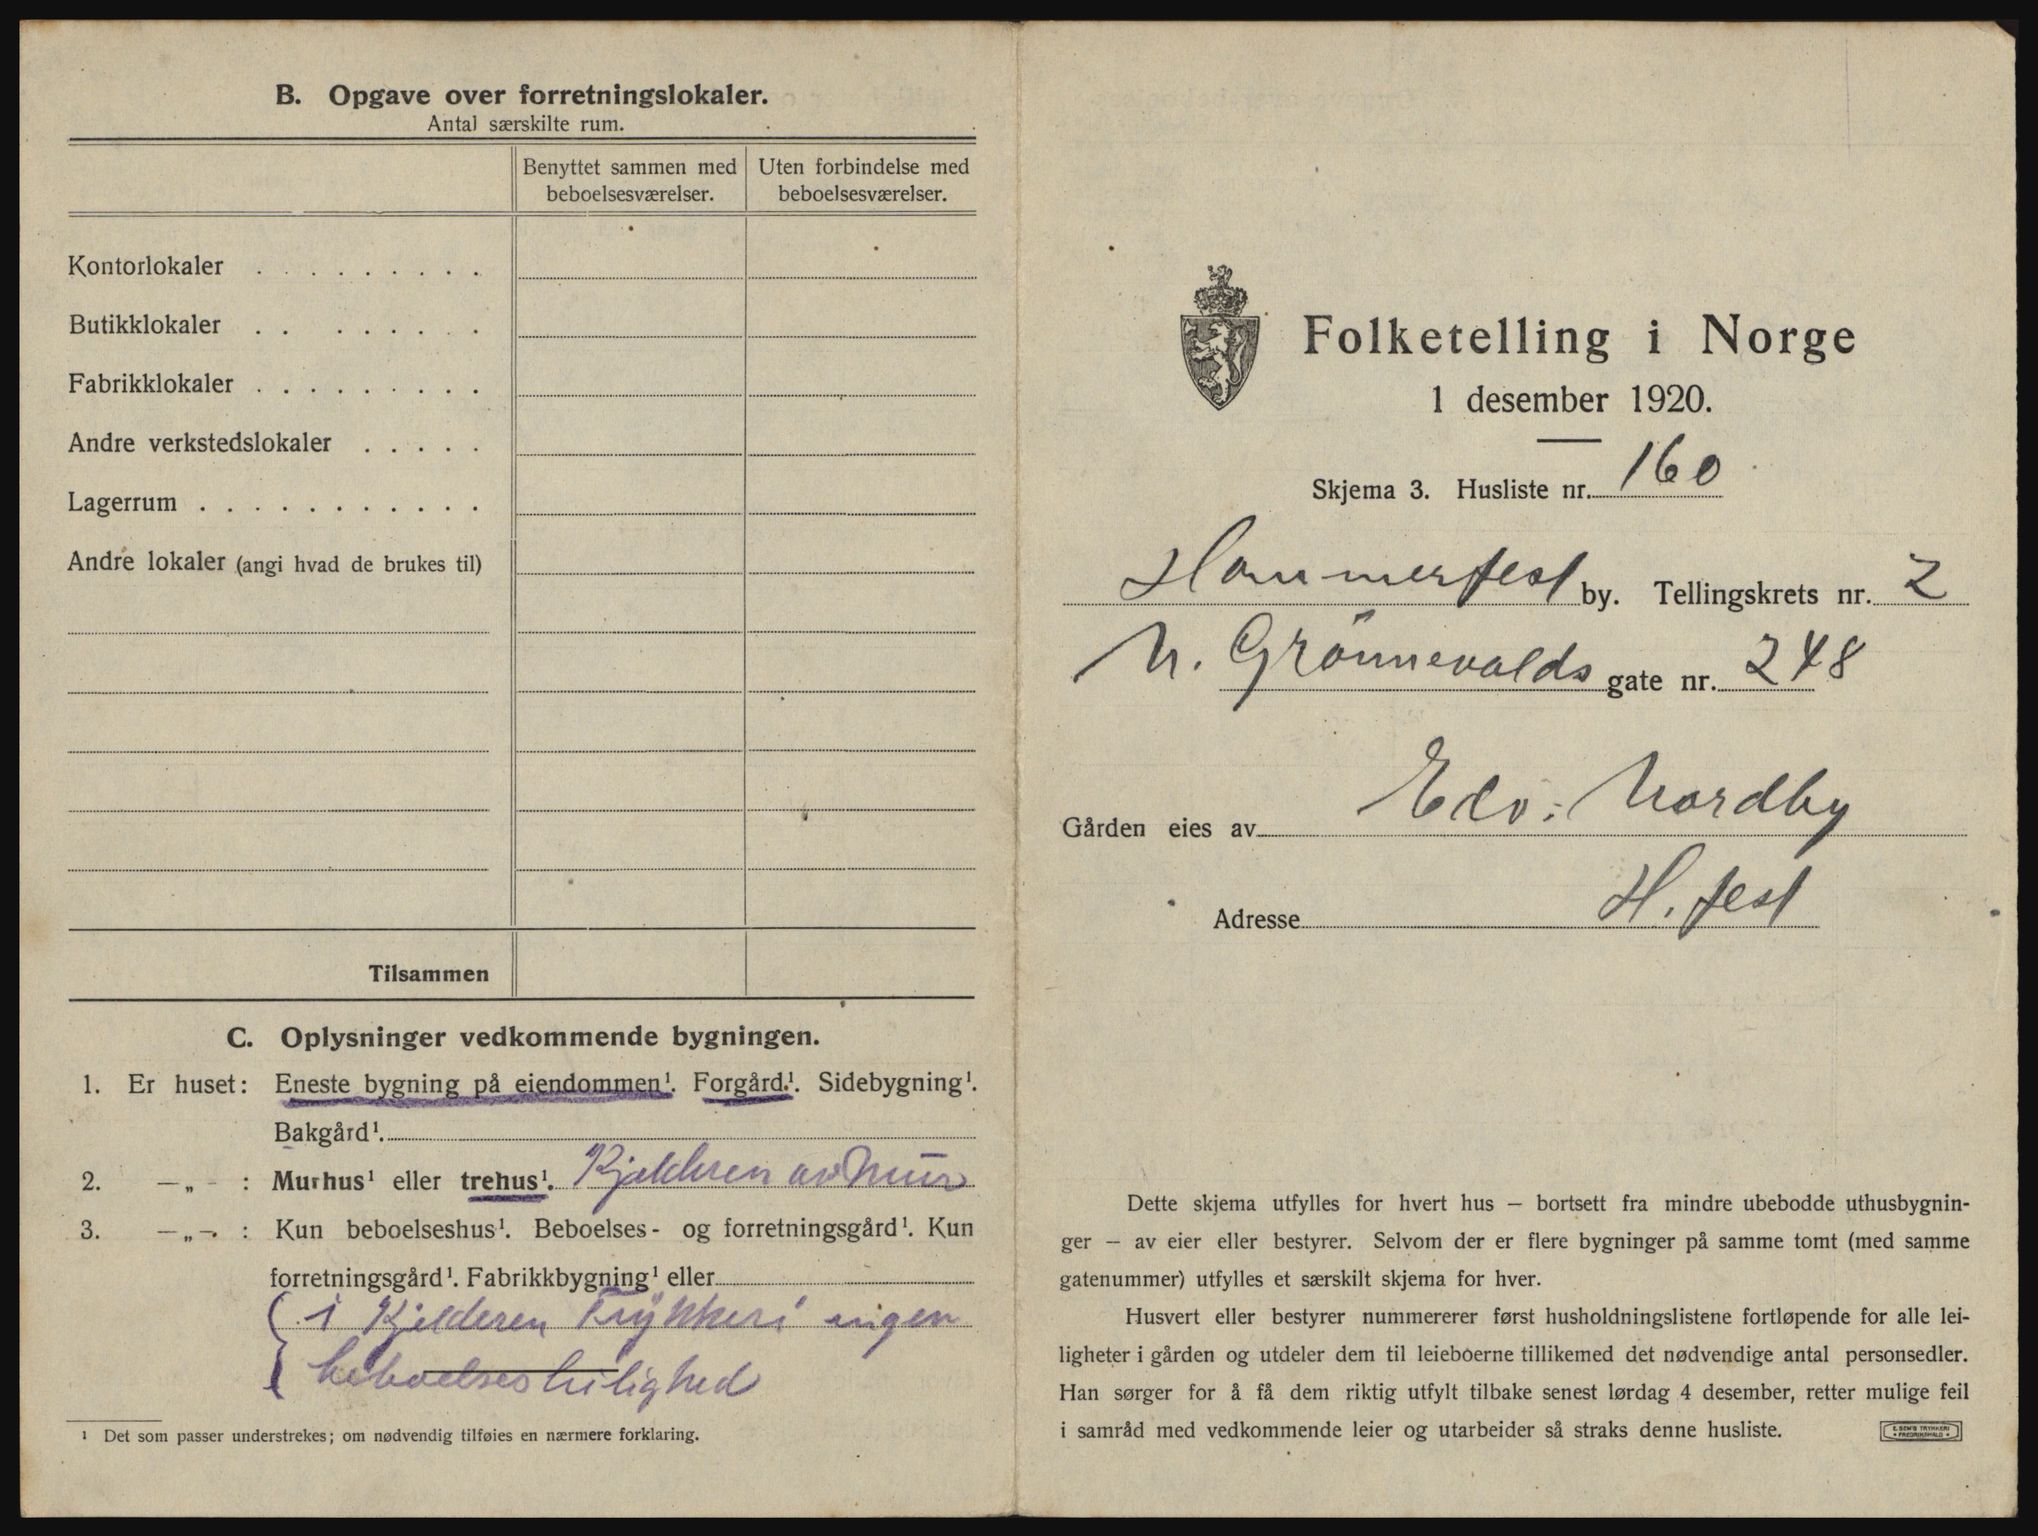 B. Opgave over forretningslokaler.
Antal særskilte rum.
Benyttet sammen med beboelsesværelser.
Uten forbindelse med beboelsesværelser.
Kontorlokaler . . . . . . . . .
Butikklokaler . . . . . . . .
Fabrikklokaler . . . . . . . . .
Andre verkstedslokaler . . . . .
Lagerrum . . . . . . . . . . .
Andre lokaler (angi hvad de brukes til)
Tilsammen
C. Oplysninger vedkommende bygningen.
1. Er huset: Eneste bygning på eiendommen¹. Forgård.¹. Sidebygning¹.
Bakgård¹.
2. —„— : Murhus¹ eller trehus¹. Kjelderen av Mur
3. —„—. : Kun beboelseshus¹. Beboelses- og forretningsgård¹. Kun
forretningsgård¹. Fabrikkbygning¹ eller
i Kjelderen Trykkeri ingen
beboelsesleilighed
¹ Det som passer understrekes; om nødvendig tilføies en nærmere forklaring.
Folketelling i Norge
1 desember 1920.
Skjema 3. Husliste nr. 160
Hammerfest by. Tellingskrets nr. 2
N. Grönnevolds gate nr. 248
Gården eies av Edv. Nordby
Adresse H.fest
Dette skjema utfylles for hvert hus — bortsett fra mindre ubebodde uthusbygnin-
ger — av eier eller bestyrer. Selvom der er flere bygninger på samme tomt (med samme
gatenummer) utfylles et særskilt skjema for hver.
Husvert eller bestyrer nummererer først husholdningslistene fortløpende for alle lei-
ligheter i gården og utdeler dem til leieboerne tillikemed det nødvendige antal personsedler.
Han sørger for å få dem riktig utfylt tilbake senest lørdag 4 desember, retter mulige feil
i samråd med vedkommende leier og utarbeider så straks denne husliste.
E. SEM'S TRYKKERI
• FREDRIKSHALD •